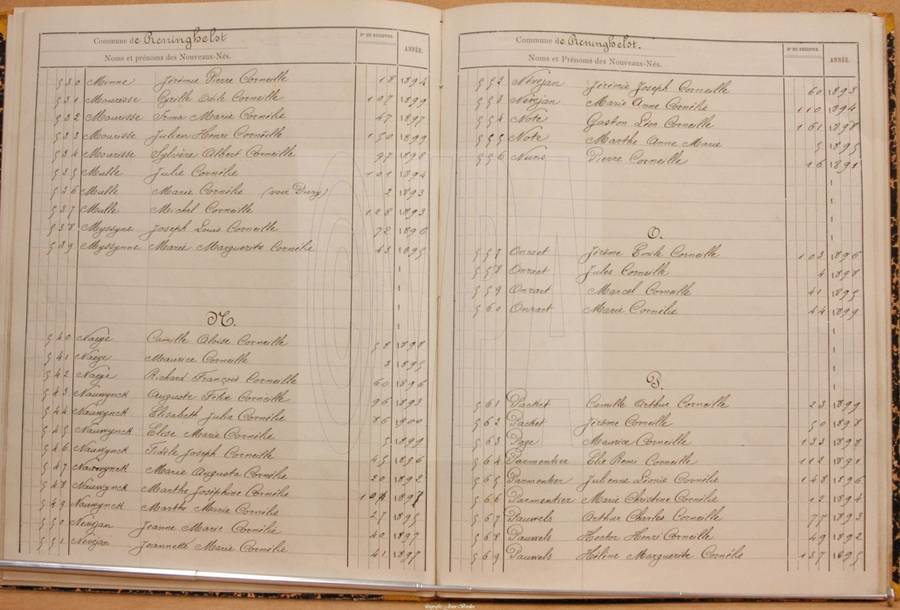 Commune de Reninghelst
Noms et prénoms des Nouveaux-Nés.
Nº DU REGISTRE.
ANNÉE.
530 Minne Jérémie Pierre Corneille 18 1894
531 Mourisse Cyrille Odile Corneille 107 1899
532 Mourisse Irma Marie Cornélie 47 1897
533 Mourisse Julien Henri Corneille 150 1899
534 Mourisse Sylvère Albert Corneille 97 1898
535 Mulle Julie Cornélie 101 1894
536 Mulle Marie Cornélie 2 1893
537 Mulle Michel Corneille 128 1893
538 Myssyne Joseph Louis Corneille 72 1896
539 Myssyenne Marie Marguerite Cornélie 43 1895
N.
540 Naeye Camille Aloïse Corneille 58 1898
541 Naeye Maurice Corneille 2 1895
542 Naeye Richard François Corneille 60 1896
543 Nauwynck Auguste Félix Corneille 96 1893
544 Nauwynck Elisabeth Julia Cornélie 86 1900
545 Nauwynck Elise Marie Cornélie 5 1899
546 Nauwynck Fidèle Joseph Corneille 45 1896
547 Nauwynck Marie Augusta Cornélie 20 1892
548 Nauwynck Marthe Joséphine Cornélie 1897
549 Nauwynck Marthe Marie Cornélie 27 1895
550 Nevejan Jeanne Marie Cornélie 40 1897
551 Nevejan Jeannette Marie Cornélie 41 1897
Commune de Reninghelst.
Noms et Prénoms des Nouveaux-Nés.
Nº DU REGISTRE.
ANNÉE.
552 Nevejan Jérémie Joseph Corneille 60 1893
553 Nevejan Marie Anne Cornélie 110 1894
554 Note Gaston Léon Corneille 161 1898
555 Note Marthe Anne Marie 5 1895
556 Nuns Pierre Corneille 16 1891
O.
557 Onraet Jérôme Emile Corneille 103 1896
558 Onraet Jules Corneille 4 1898
559 Onraet Marcel Corneille 41 1895
560 Onraet Marie Cornélie 44 1899
P.
561 Packet Camille Arthur Corneille 23 1899
562 Packet Jérôme Corneille 50 1898
563 Page Maurice Corneille 133 1898
564 Parmentier Elie Remi Corneille 112 1891
565 Parmentier Julienne Léonie Cornélie 148 1896
566 Parmentier Marie Christine Cornélie 12 1894
567 Pauwels Arthur Charles Corneille 77 1893
568 Pauwels Hector Henri Corneille 49 1892
569 Pauwels Hélène Marguerite Cornélie 137 1895